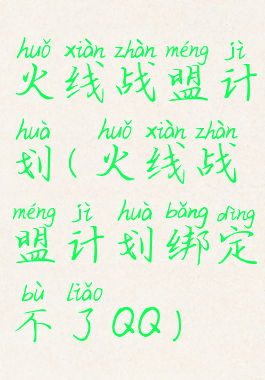 huǒ xiàn zhàn méng jì
火线战盟计
huà huǒ xiàn zhàn
划(火线战
méng jì huà bǎng dìng
盟计划绑定
bù liǎo
不了QQ)